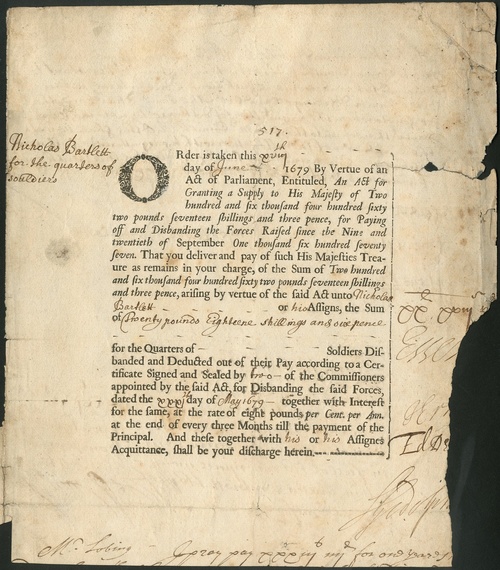 517.
Nicholas Bartlett
for the quarters of
souldiers
ORder is taken this xviij th
day of June 1679 By Vertue of an
Act of Parliament, Entituled, An Act for
Granting a Supply to His Majesty of Two
hundred and six thousand four hundred sixty
two pounds seventeen shillings and three pence, for Paying
off and Disbanding the Forces Raised since the Nine and
twentieth of September One thousand six hundred seventy
seven. That you deliver and pay of such His Majesties Trea-
sure as remains in your charge, of the Sum of Two hundred
and six thousand four hundred sixty two pounds seventeen shillings
and three pence, arising by vertue of the said Act unto Nicholas
Bartlett or his Assigns, the Sum
of Twenty pounds Eighteene shillings and six pence
for the Quarters of Soldiers Dis-
banded and Deducted out of their Pay according to a Cer-
tificate Signed and Sealed by two of the Commissioners
appointed by the said Act, for Disbanding the said Forces,
dated the xxxth day of May 1679 together with Interest
for the same, at the rate of eight pounds per Cent. per Ann.
at the end of every three Months till the payment of the
Principal. And these together with his or his Assignes
Acquittance, shall be your discharge herein.
I pray pay